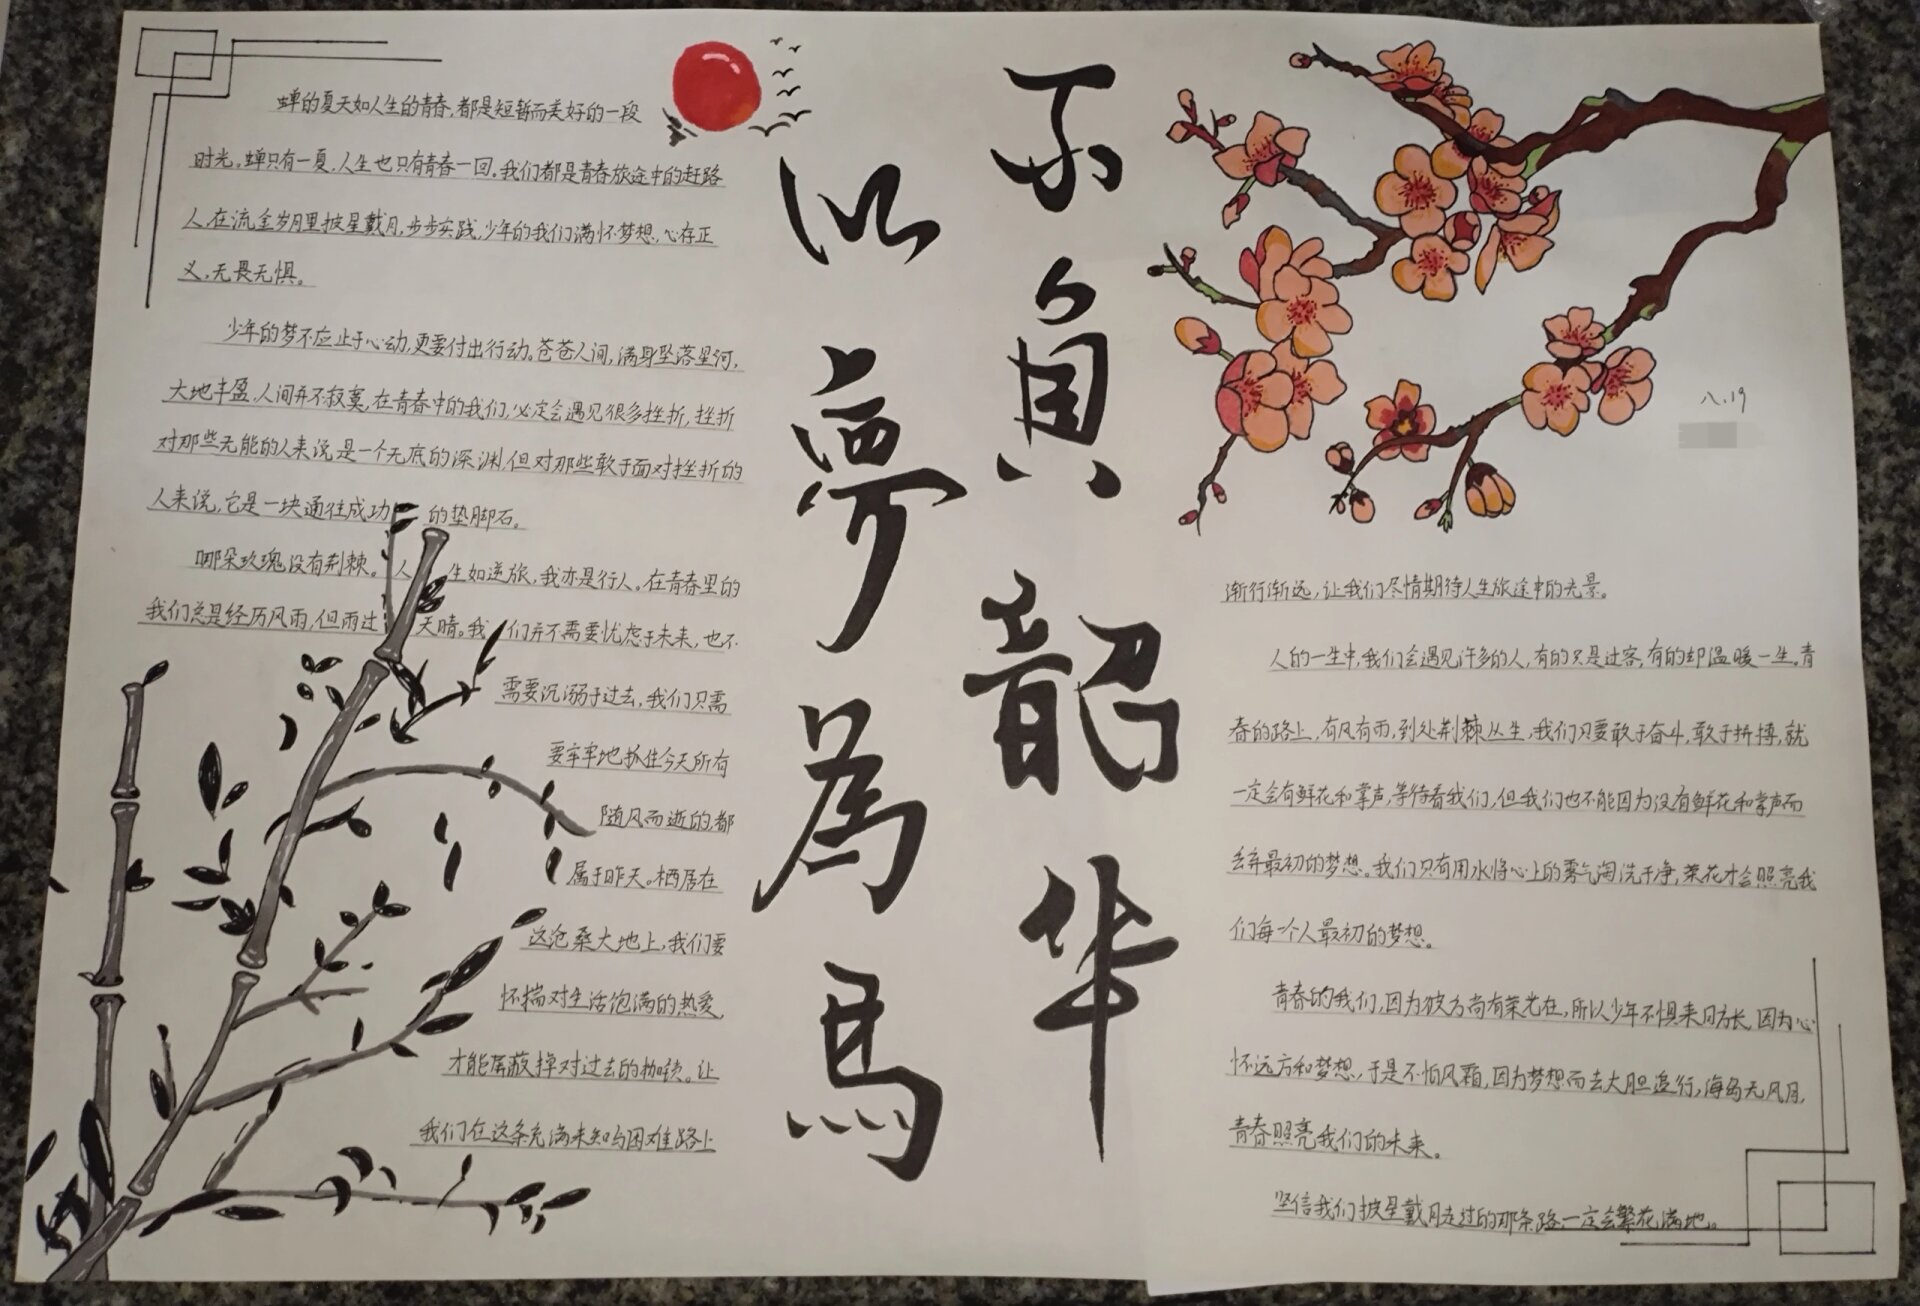 以梦為馬
不負韶华
蝉的夏天如人生的青春,都是短暂而美好的一段
时光。蝉只有一夏,人生也只有青春一回。我们都是青春旅途中的赶路
人,在流金岁月里披星戴月,步步实践,少年的我们满怀梦想,心存正
义,无畏无惧。
少年的梦不应止于心动,更要付出行动。苍苍人间,满身坠落星河,
大地丰盈,人间并不寂寞,在青春中的我们,必定会遇见很多挫折,挫折
对那些无能的人来说是一个无底的深渊,但对那些敢于面对挫折的
人来说,它是一块通往成功的垫脚石。
哪朵玫瑰没有荆棘。人生如逆旅,我亦是行人。在青春里的
我们总是经历风雨,但雨过天晴。我们并不需要忧虑于未来,也不
需要沉溺于过去,我们只需
要牢牢地抓住今天所有
随风而逝的,都
属于昨天。栖居在
这沧桑大地上,我们要
怀揣对生活饱满的热爱,
才能屏蔽掉对过去的枷锁。让
我们在这条充满未知与困难路上
渐行渐远,让我们尽情期待人生旅途中的光景。
人的一生中,我们会遇见许多的人,有的只是过客,有的却温暖一生。青
春的路上,有风有雨,到处荆棘丛生,我们只要敢于奋斗,敢于拼搏,就
一定会有鲜花和掌声,等待着我们,但我们也不能因为没有鲜花和掌声而
丢弃最初的梦想。我们只有用水将心上的雾气淘洗干净,荣光才会照亮我
们每一个人最初的梦想。
青春的我们,因为彼方尚有荣光在,所以少年不惧来日方长,因为心
怀远方和梦想,于是不怕风霜,因为梦想而去大胆追行,海岛无风月,
青春照亮我们的未来。
坚信我们披星戴月走过的那条路一定会繁花满地。
八.19